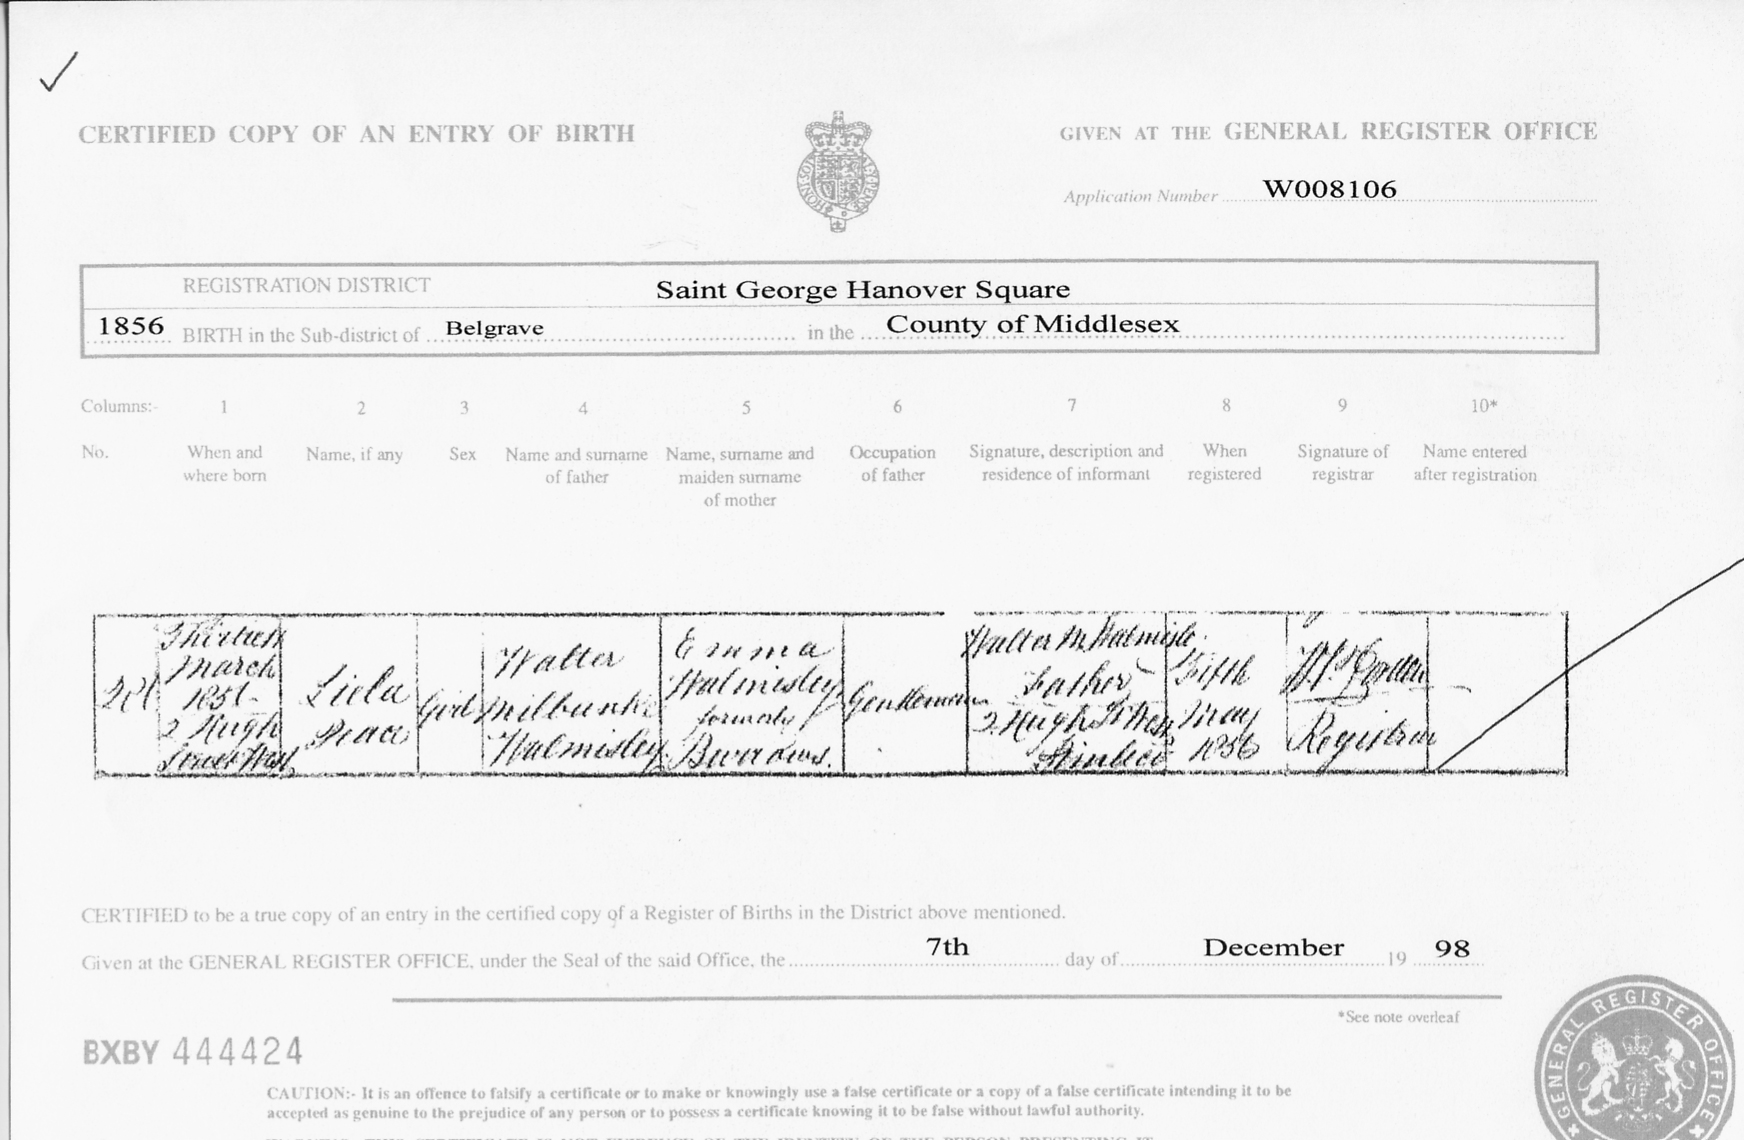 CERTIFIED COPY OF AN ENTRY OF BIRTH
GIVEN AT THE GENERAL REGISTER OFFICE
Application Number W008106
REGISTRATION DISTRICT Saint George Hanover Square
1856 BIRTH in the Sub-district of Belgrave in the County of Middlesex
Columns:- 1 2 3 4 5 6 7 8 9 10*
No. When and where born
Name, if any
Sex
Name and surname of father
Name, surname and maiden surname of mother
Occupation of father
Signature, description and residence of informant
When registered
Signature of registrar
Name entered after registration
March
2 Hugh
Street West
Liela
Peace
Girl
Walter
Milbanke
Walmisley
Emma
Walmisley
formerly
Burrows.
Gentleman
Walter M. Walmisley
Father
2 Hugh St West
Pimlico
Fifth
May
1856
Registrar
CERTIFIED to be a true copy of an entry in the certified copy of a Register of Births in the District above mentioned.
Given at the GENERAL REGISTER OFFICE, under the Seal of the said Office, the 7th day of December 19 98
*See note overleaf
BXBY 444424
CAUTION:- It is an offence to falsify a certificate or to make or knowingly use a false certificate or a copy of a false certificate intending it to be
accepted as genuine to the prejudice of any person or to possess a certificate knowing it to be false without lawful authority.
GENERAL REGISTER OFFICE